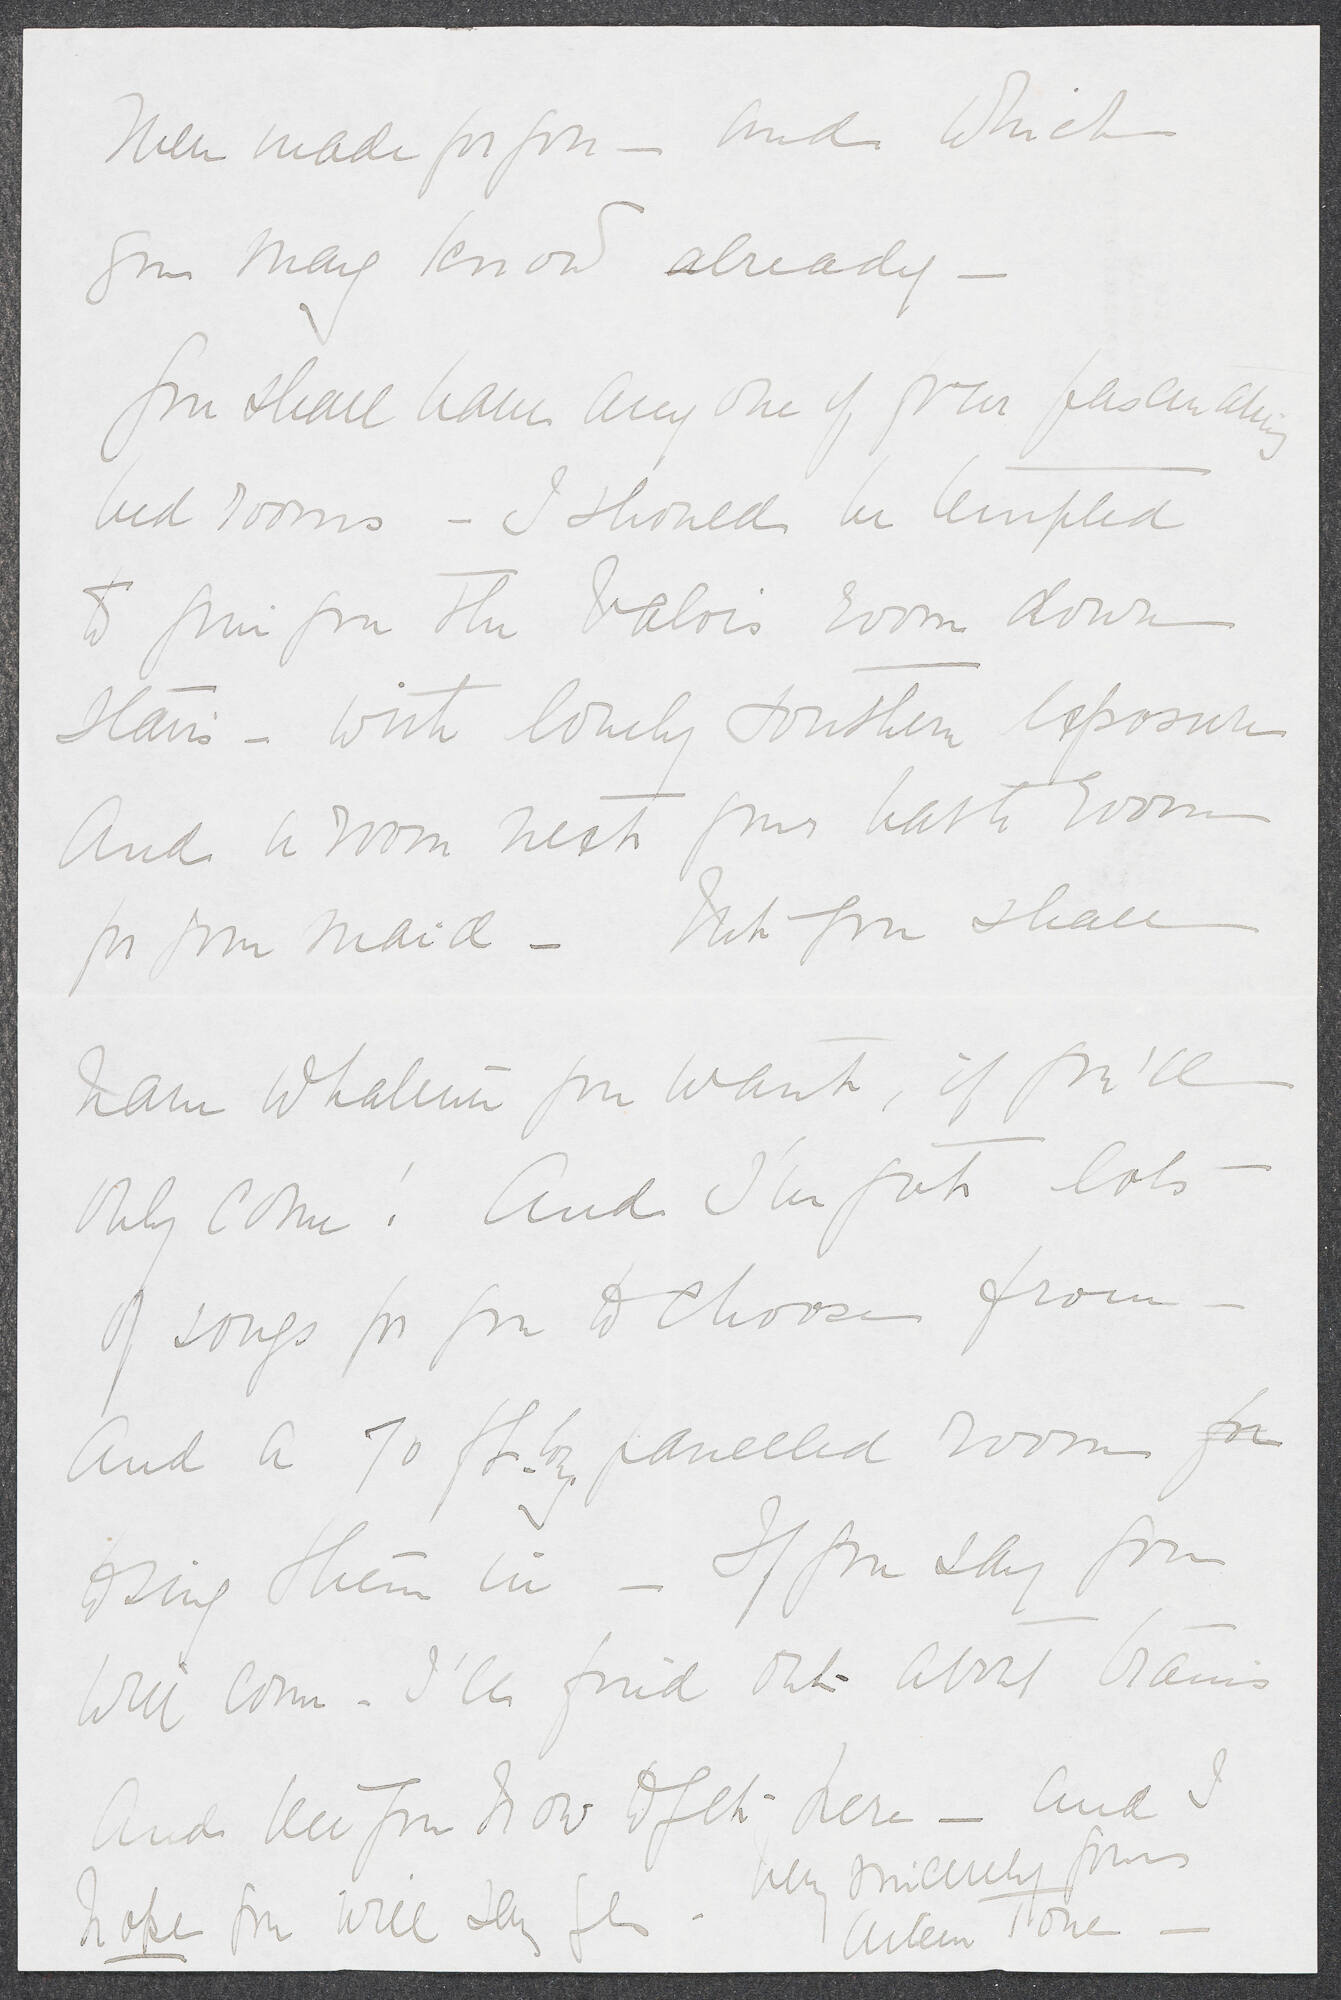 were made for you — and which
you may know already —
You shall have any one of four fascinating
bed rooms — I should be tempted
to give you the Valois room down
stairs — with lovely southern exposure
And a room next your bath room
for your maid — But you shall
have whatever you want, if you'll
only come! And I've got lots
of songs for you to choose from —
And a 70 ft. panelled room for
to sing them in — If you say you
will come — I'll find out about trains
And tell you how to get here — and I
hope you will say yes — Very sincerely yours
Aileen Tone —